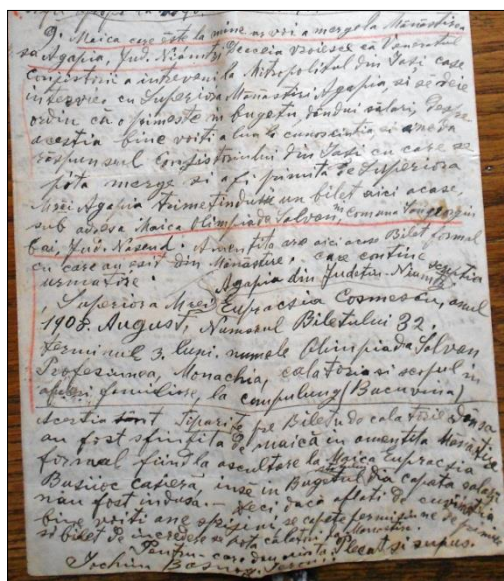 D. Maica care este la mine ar vrì a merge la Mănăstirea
sa Agapia, Jud. Niamțu, Deaceia voiesce ca Veneratul
Concistorii a interveni la Mitropolitul din Iasi case
intervie cu Superiora Mănăstiri Agapia, si se deie
ordin că o primeste in bugetu, despre
acestia bine voiti a lua la cunoscintia si a ne da
răspunsul Consistoriului din Iasi cu care se
pota merge si a fi primita de Superiora
Mrei Agapia trimetinduse un bilet aici acase,
sub adresa Maica Olimpiada Salvan, in comuna Sângeorgiu
bai, Jud. Năsăud. Amentita are aici acase Bilet formal
cu care au esit din Mănăsture. care contine
urmatore: Agapia din Judetiu Niamtz
Superiora Mrei Eupracsia anul
1908. August, Numarul Biletului 32,
terminul 3, luni. numele Olimpiada Salvan
Profesiunea, Monachia, calatoria si scopul in
afaceri familiare, la Campulung (Bucuvina)
Acestia sont Tiparite pre Biletu de calatorie
au fost sfintita de maică in amentita Mănăstire
formal fiind la ascultare la Maica Eupracsia
casieră, inse in Bugetul dia capata salar
nau fost indusa. Deci, dacă aflati de cuviintia
bine voiti ane se capete permisiune de primire
si bilet de incredere sa pota calatori la Monastiri.
Pentru care dau Plecat si supus.
Iochim